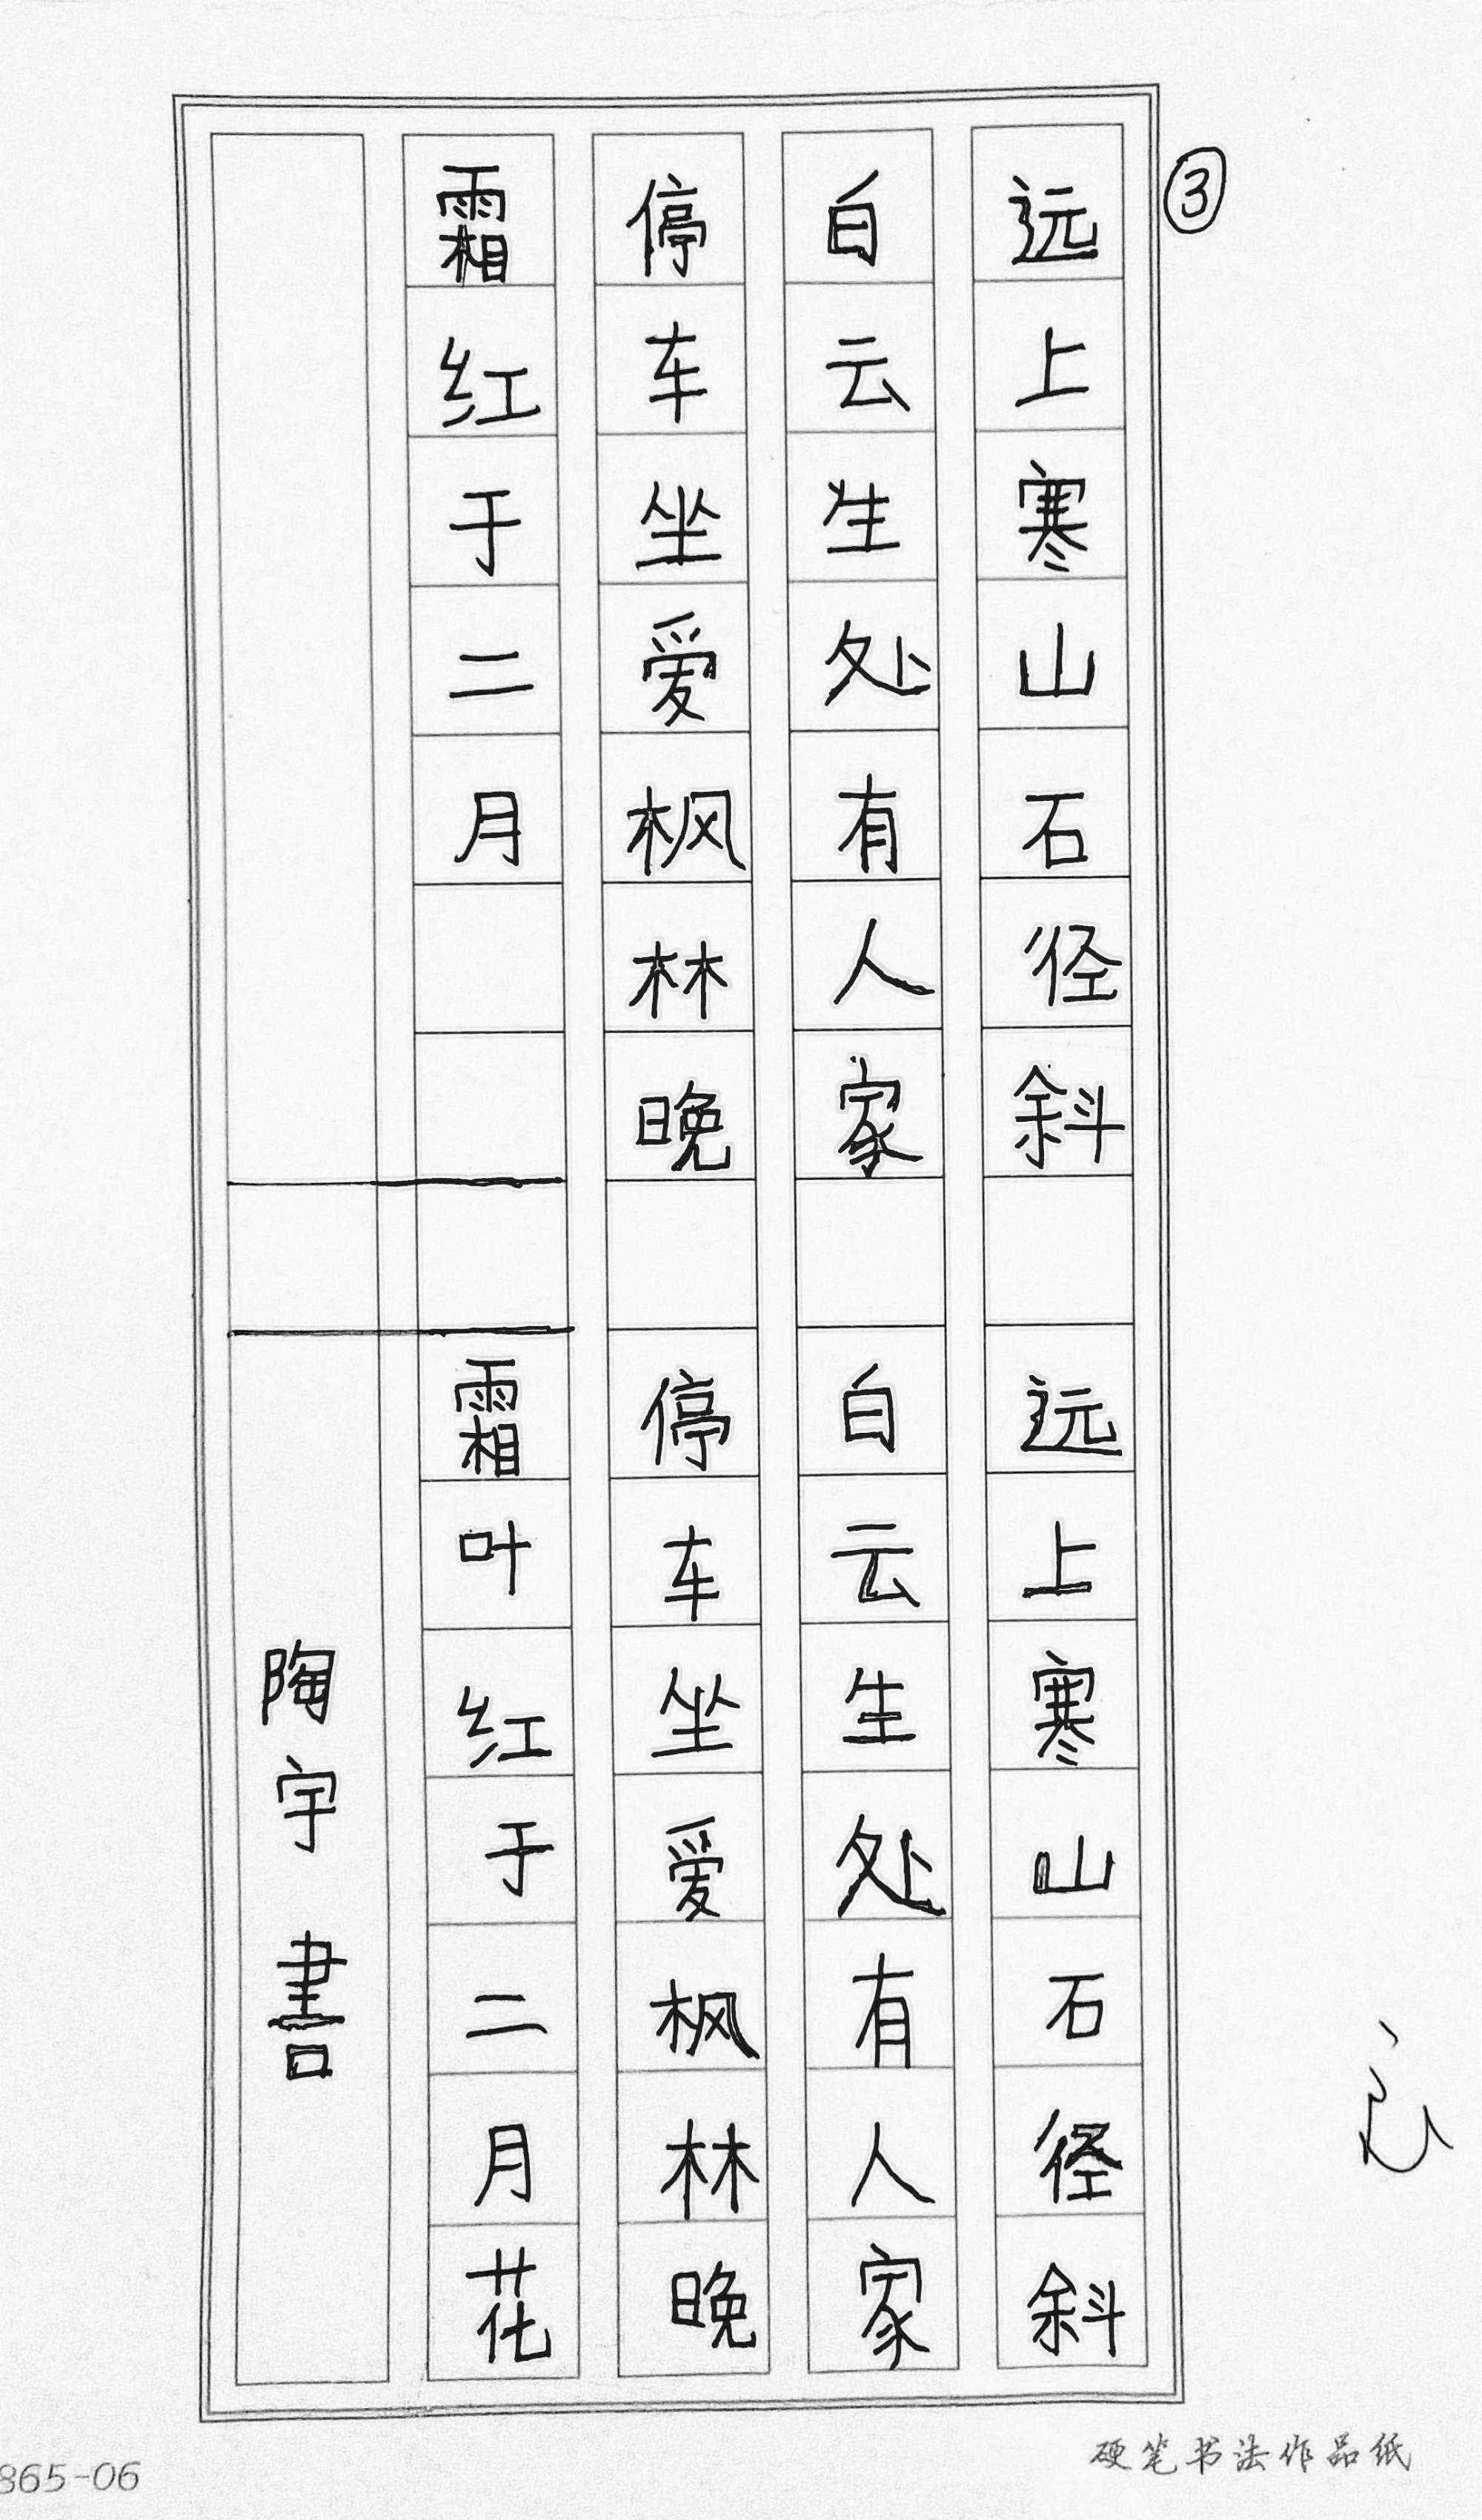 ③
远上寒山石径斜
远上寒山石径斜
白云生处有人家
白云生处有人家
停车坐爱枫林晚
停车坐爱枫林晚
霜红于二月
霜叶红于二月花
陶宇書
硬笔书法作品纸
865-06